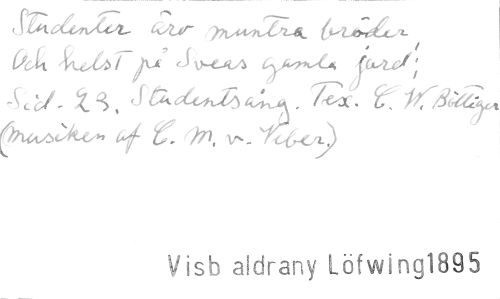 Studenter äro muntra bröder
Och helst på Sveas gamla jord!
Sid. 23. Studentsång. Tex. C. W. Böttiger
(musiken af C. M. v. Veber.)
Visb aldrany Löfwing1895